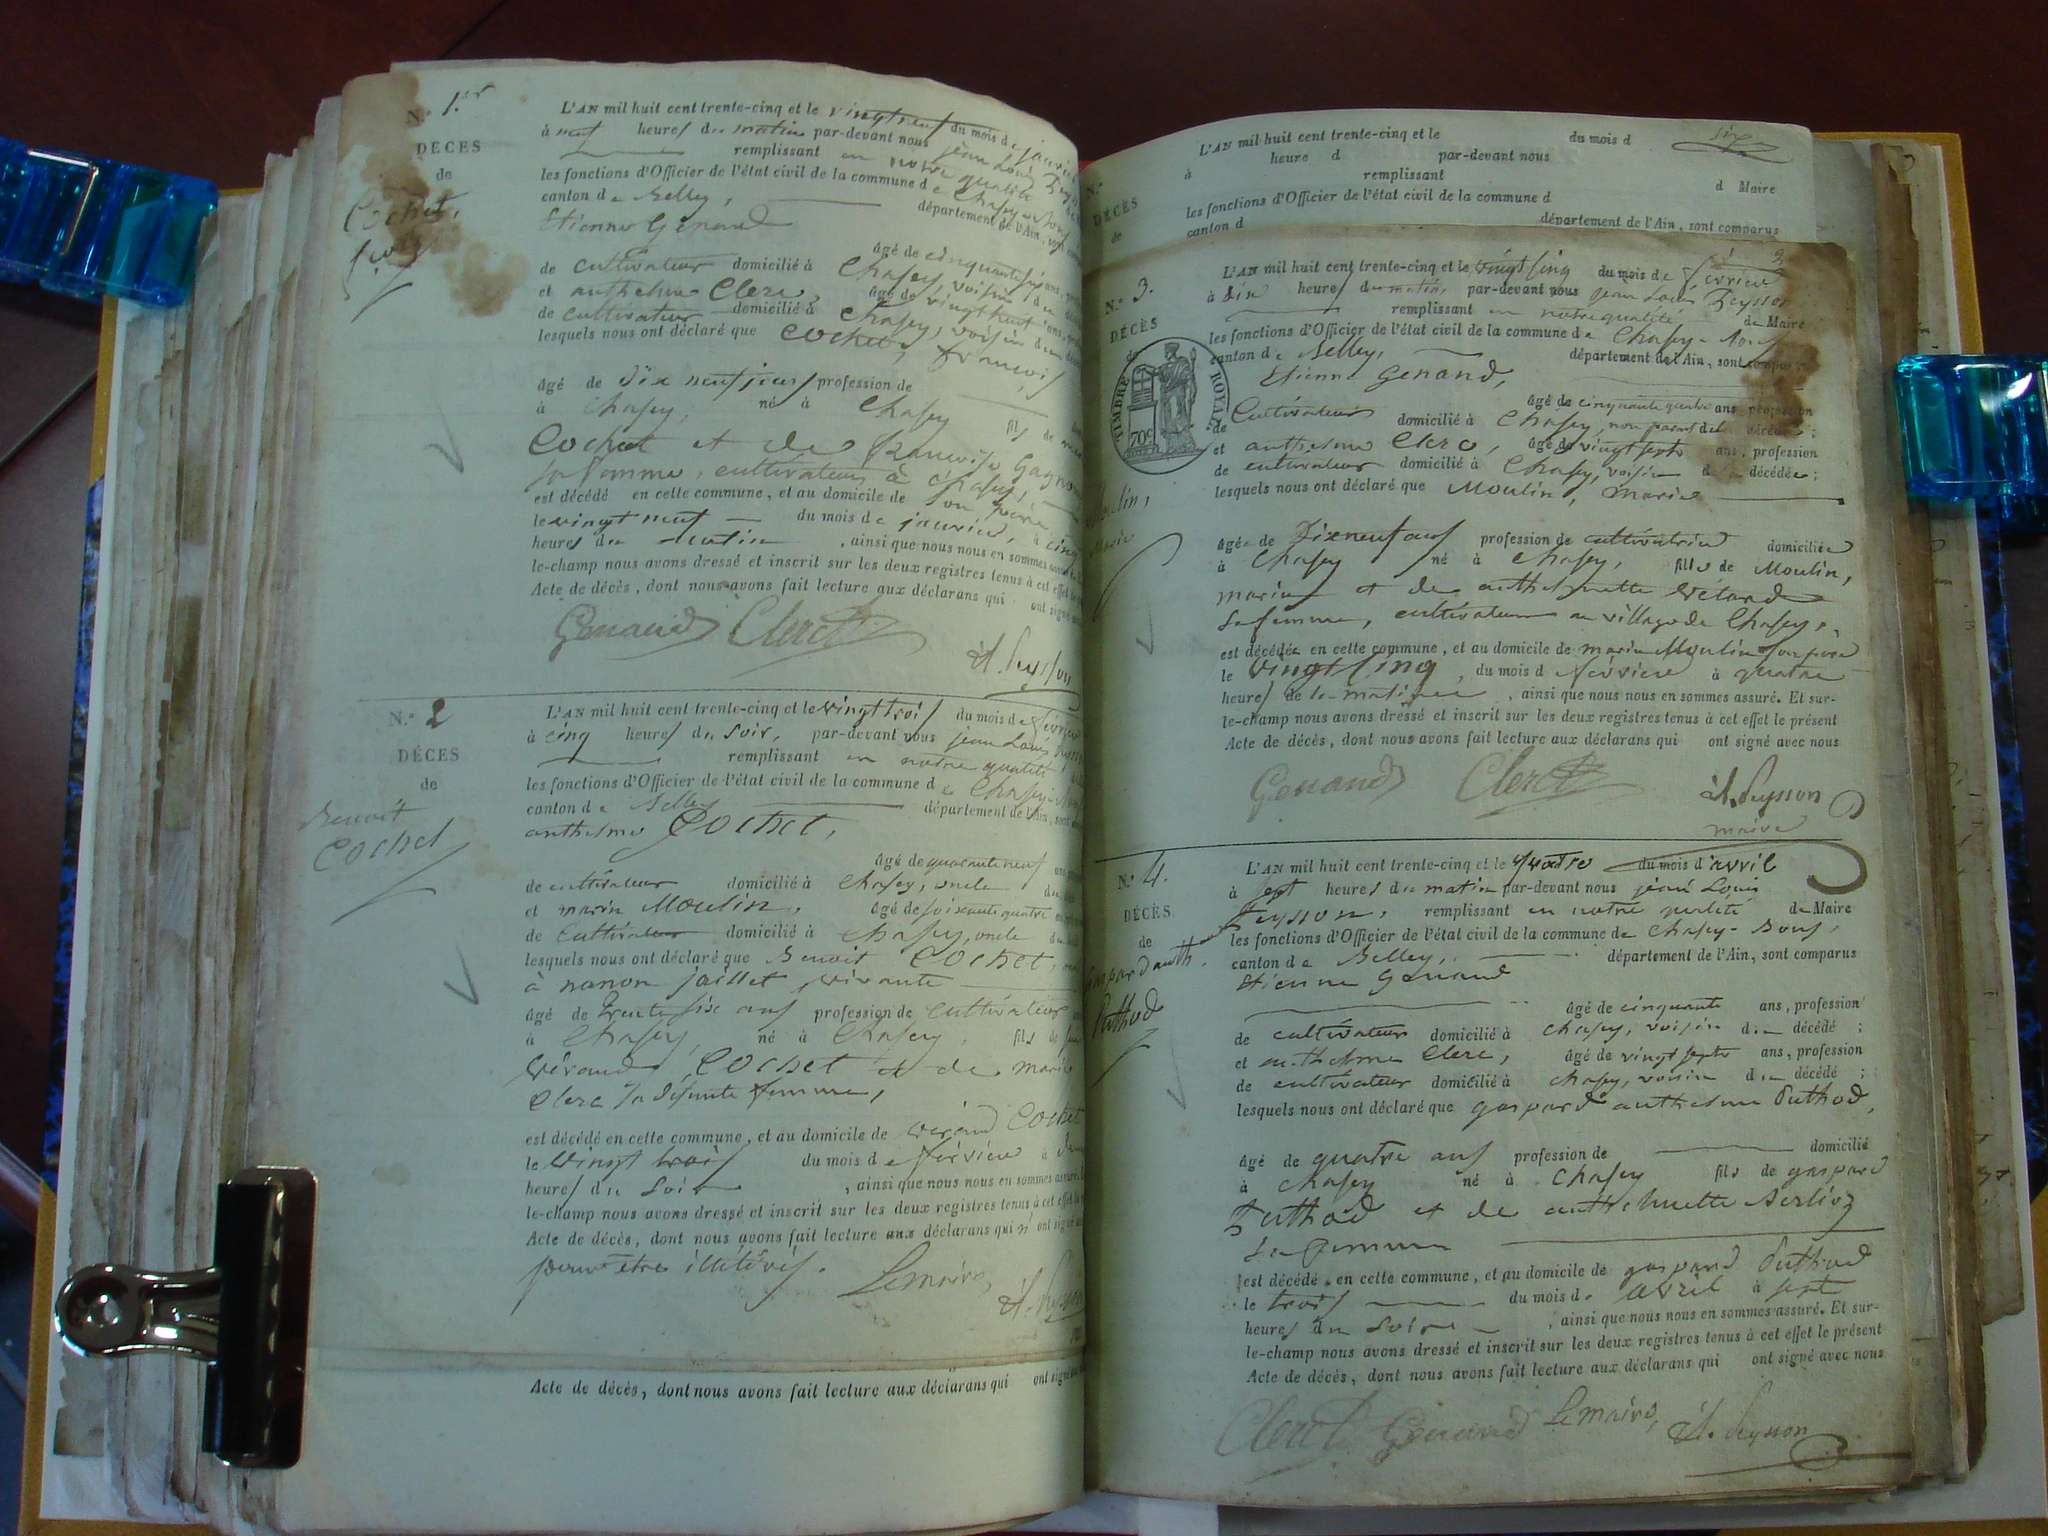 N.° 1.er
DÉCÈS
de
Cochet,
L'AN mil huit cent trente-cinq et le vingt neuf du mois de
à neuf heures du matin par-devant nous jean Louis
remplissant en notre qualité
les fonctions d'Officier de l'état civil de la commune de Chasey-Bons
canton de Belley, département de l'Ain,
Etienne Genand
âgé de cinquante
de cultivateur domicilié à Chasey, voisin du
et anthelme Clerc, âgé de vingt huit ans,
de cultivateur domicilié à Chasey, voisin du
lesquels nous ont déclaré que Cochet, françois
âgé de Dix neuf jours profession de
à Chasey, né à Chasey fils de
Cochet et de francoise
sa femme, cultivateurs à Chasey,
est décédé en cette commune, et au domicile de son père
le vingt neuf du mois de janvier, à cinq
heures du matin, ainsi que nous nous en sommes
le-champ nous avons dressé et inscrit sur les deux registres tenus à cet effet
Acte de décès, dont nous avons fait lecture aux déclarans qui ont signé
Genand Clerc
N.° 2
DÉCÈS
de
Benoit
Cochet
L'AN mil huit cent trente-cinq et le vingt trois du mois de février
à cinq heures du soir, par-devant nous jean Louis
remplissant en notre qualité
les fonctions d'Officier de l'état civil de la commune de Chasey-
canton de Belley département de l'Ain,
anthelme Cochet,
âgé de quarante neuf
de cultivateur domicilié à Chasey, oncle
et marin Moulin, âgé de soixante quatre
de cultivateur domicilié à Chasey, oncle du
lesquels nous ont déclaré que Benoit Cochet,
à nanon jaillet vivante
âgé de trente six ans profession de cultivateur
à Chasey, né à Chasey, fils de
vérand Cochet et de marie
Clerc sa défunte femme,
est décédé en cette commune, et au domicile de vérand Cochet
le vingt trois du mois de février à
heures du soir, ainsi que nous nous en sommes assuré.
le-champ nous avons dressé et inscrit sur les deux registres tenus à cet effet
Acte de décès, dont nous avons fait lecture aux déclarans qui n'ont signé
pour être illétérés. Le maire,
Acte de décès, dont nous avons fait lecture aux déclarans qui ont signé
six
L'AN mil huit cent trente-cinq et le du mois d
à heure d par-devant nous
remplissant
N.°
DÉCÈS
de
les fonctions d'Officier de l'état civil de la commune d d Maire
canton d département de l'Ain, sont comparus
N.° 3.
DÉCÈS
de
TIMBRE ROYAL
70c
Moulin,
Marie
L'AN mil huit cent trente-cinq et le vingt cinq du mois de février
à dix heures du matin, par-devant nous jean Louis Peysson
remplissant en notre qualité de Maire
les fonctions d'Officier de l'état civil de la commune de Chasey-Bons
canton de Belley, département de l'Ain, sont comparus
Etienne Genand,
âgé de cinquante quatre ans profession
de Cultivateur domicilié à Chasey, non parent de la décédée;
et anthelme Clerc, âgé de vingt sept ans, profession
de cultivateur domicilié à Chasey, voisin de la décédée;
lesquels nous ont déclaré que Moulin, marie
âgée de Dix neuf ans profession de cultivatrice domiciliée
à Chasey né à Chasey, fille de Moulin,
marin et de anthelmette
sa femme, cultivateurs au village de Chasey,
est décédée en cette commune, et au domicile de marin Moulin son père
le vingt cinq, du mois d février à quatre
heures de la matinée, ainsi que nous nous en sommes assuré. Et sur-
le-champ nous avons dressé et inscrit sur les deux registres tenus à cet effet le présent
Acte de décès, dont nous avons fait lecture aux déclarans qui ont signé avec nous
Genand Clerc Peysson
maire
N.° 4.
DÉCÈS
de
Gaspard anth.
Puthod
L'AN mil huit cent trente-cinq et le quatre du mois d'avril
à sept heures du matin par-devant nous jean Louis
Peysson, remplissant en notre qualité de Maire
les fonctions d'Officier de l'état civil de la commune de Chasey-Bons,
canton de Belley, département de l'Ain, sont comparus
Etienne Genand
âgé de cinquante ans, profession
de cultivateur domicilié à Chasey, voisin du décédé;
et anthelme Clerc, âgé de vingt sept ans, profession
de cultivateur domicilié à Chasey, voisin du décédé;
lesquels nous ont déclaré que gaspard anthelme Puthod,
âgé de quatre ans profession de domicilié
à Chasey né à Chasey fils de gaspard
Puthod et de anthelmette Berlioz
sa femme
est décédé en cette commune, et au domicile de gaspard Puthod
le trois du mois d avril à sept
heures du soir, ainsi que nous nous en sommes assuré. Et sur-
le-champ nous avons dressé et inscrit sur les deux registres tenus à cet effet le présent
Acte de décès, dont nous avons fait lecture aux déclarans qui ont signé avec nous
Clerc Genand Le maire, Peysson